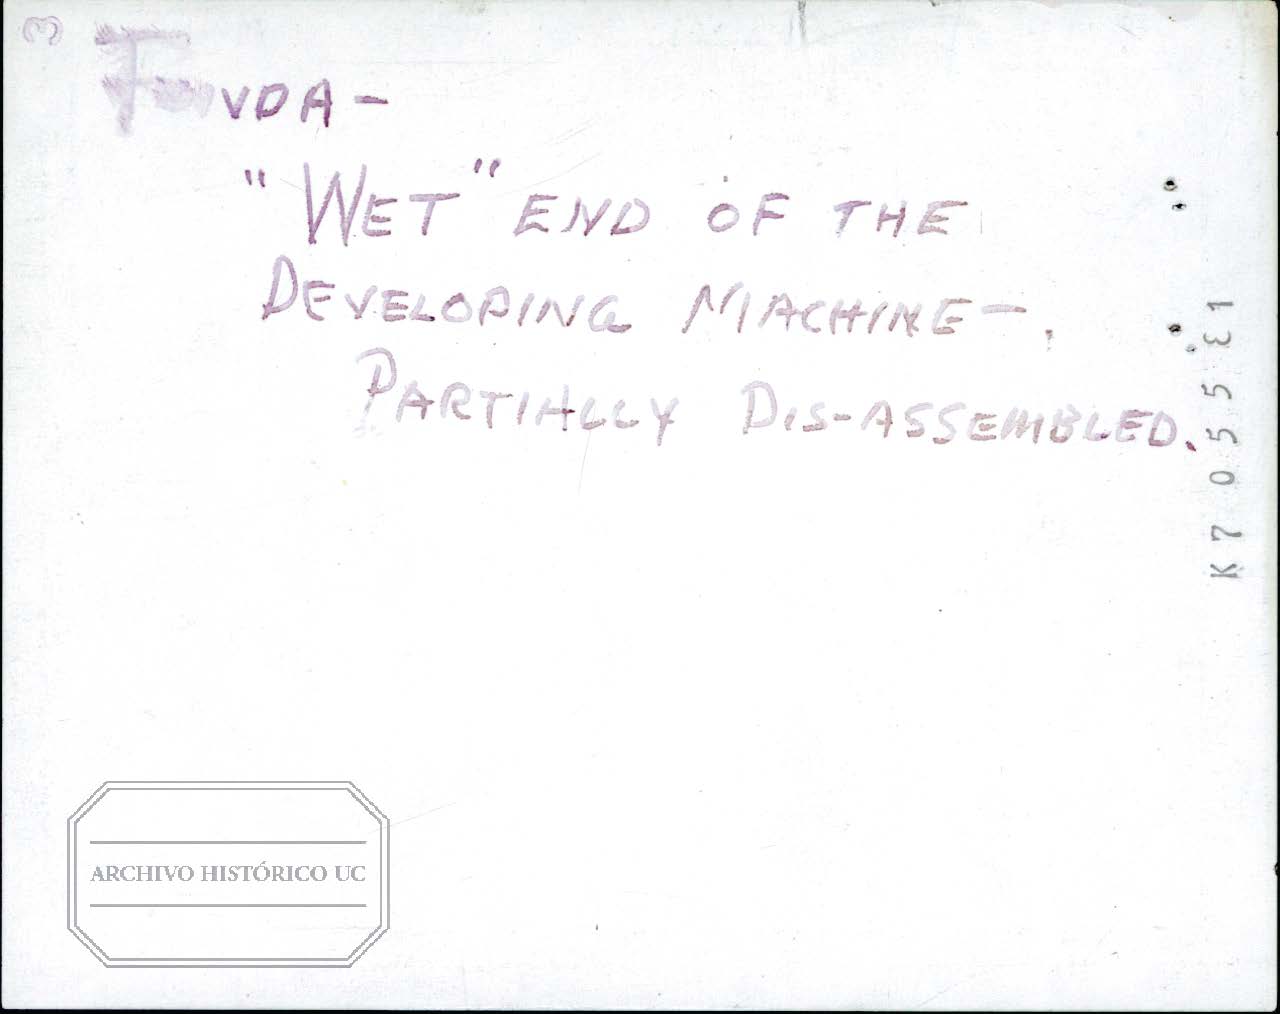 FONDA –
"WET" END OF THE
DEVELOPING MACHINE –.
PARTIALLY DIS-ASSEMBLED.
K705531
ARCHIVO HISTÓRICO UC